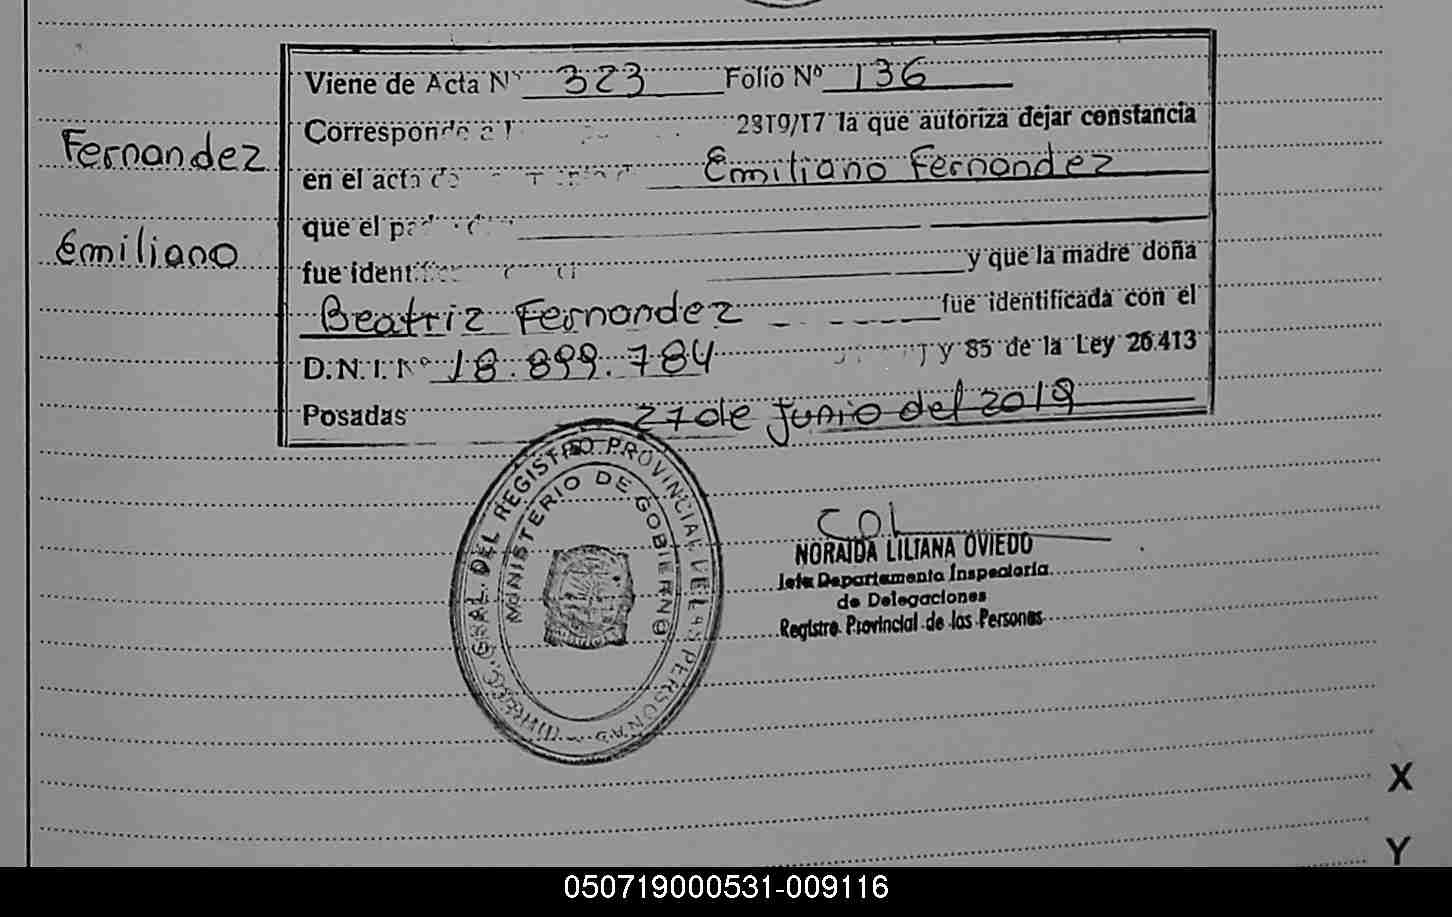 Fernandez
Emiliano
Viene de Acta Nº 323 Folio Nº 136
Corresponde a 2819/17 la que autoriza dejar constancia
en el acta de Emiliano Fernandez
que el
fue
y que la madre doña
Beatriz Fernandez fue identificada con el
D.N.I. Nº 18.899.784 y 85 de la Ley 26.413
Posadas 27 de Junio del 2019
DIRECC. GRAL. DEL REGISTRO PROVINCIAL DE LAS PERSONAS
MINISTERIO DE GOBIERNO
NORAIDA LILIANA OVIEDO
Jefa Departamento Inspectoría
de Delegaciones
Registro Provincial de las Personas
X
Y
050719000531-009116